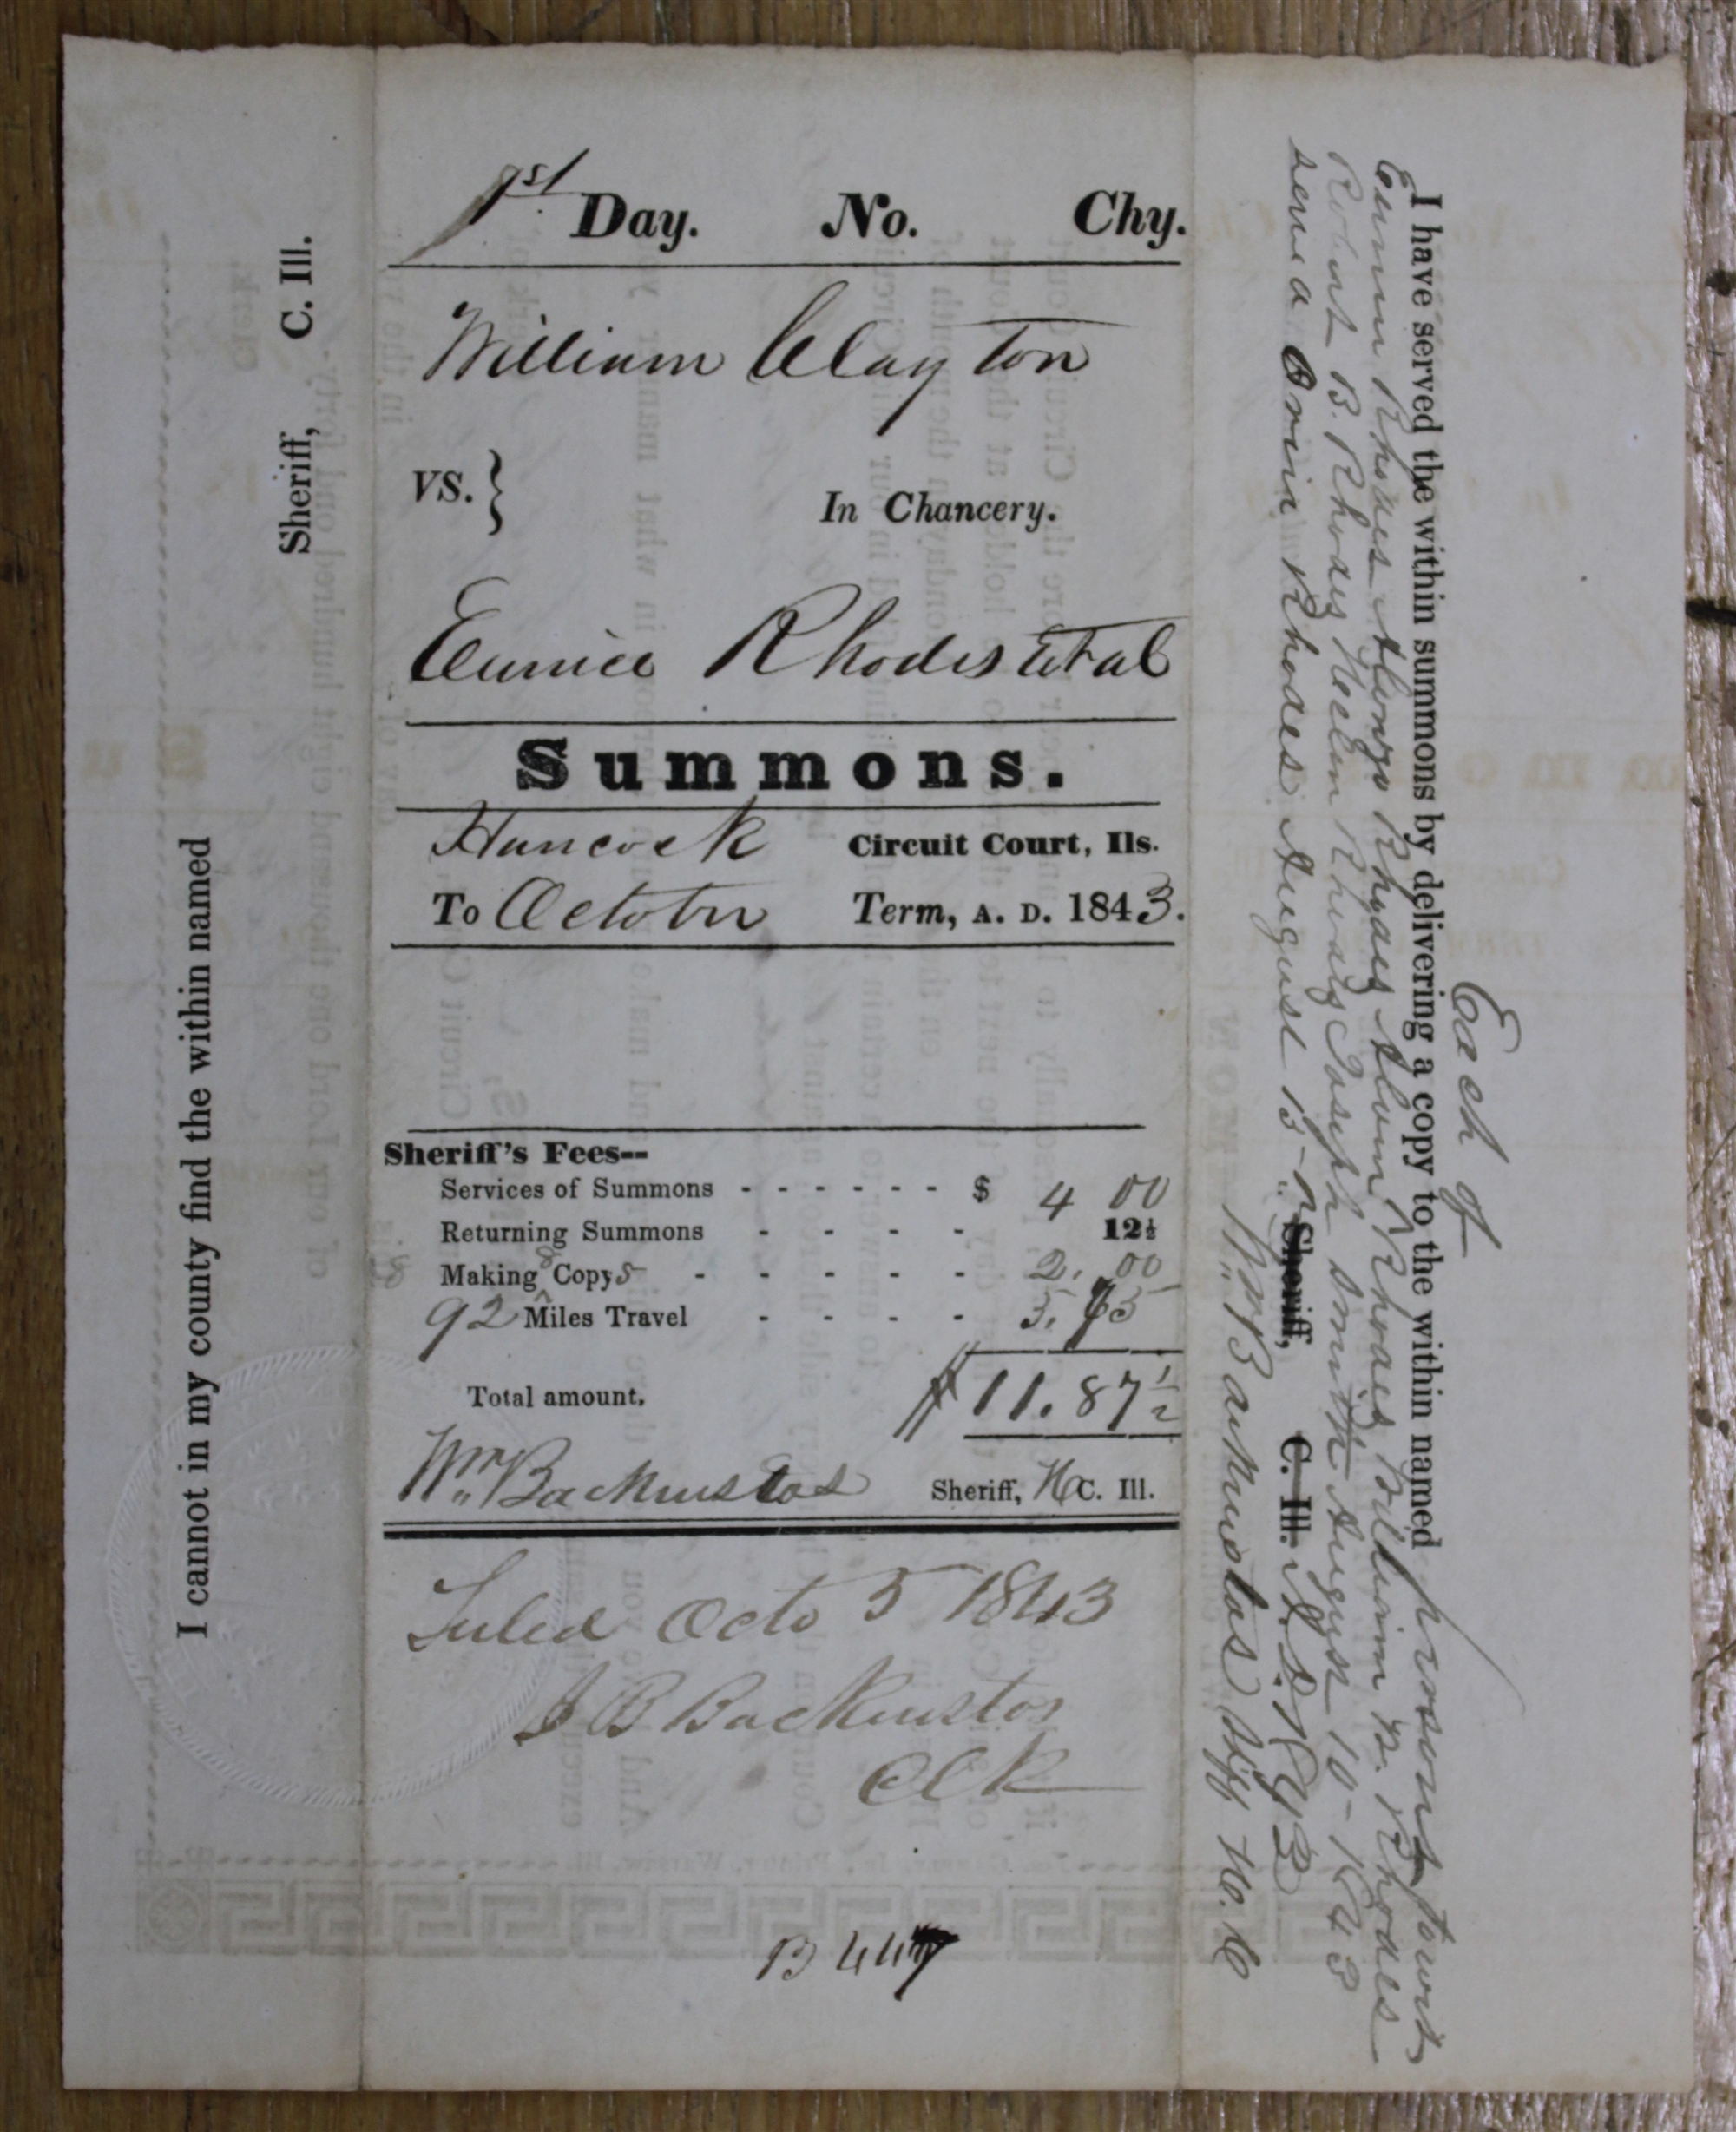 1st Day. No. Chy.
William Clayton
VS. } In Chancery.
Eunice Rhodes et al
Summons.
Hancock Circuit Court, Ils.
To October Term, A. D. 1843.
Sheriff's Fees--
Services of Summons - - - - - - $ 4 00
Returning Summons - - - - 12½
Making 8 Copys - - - - - 2. 00
92 Miles Travel - - - - 5. 75
Total amount. $11.87½
Wm Backenstos Sheriff, H C. Ill.
Filed Octo 5 1843
J B Backenstos
Clk
B 447
I cannot in my county find the within named
Sheriff, C. Ill.
Each of
I have served the within summons by delivering a copy to the within named persons towit
Eunice Rhodes Alonzo Rhodes Rhodes William B. Rhodes
Robert B. Rhodes Rhodes Joseph Smith August 10 - 1843
served Rhodes August 15 - Sheriff, C. Ill. A. D. 1843
Wm Backenstos Shff H. C